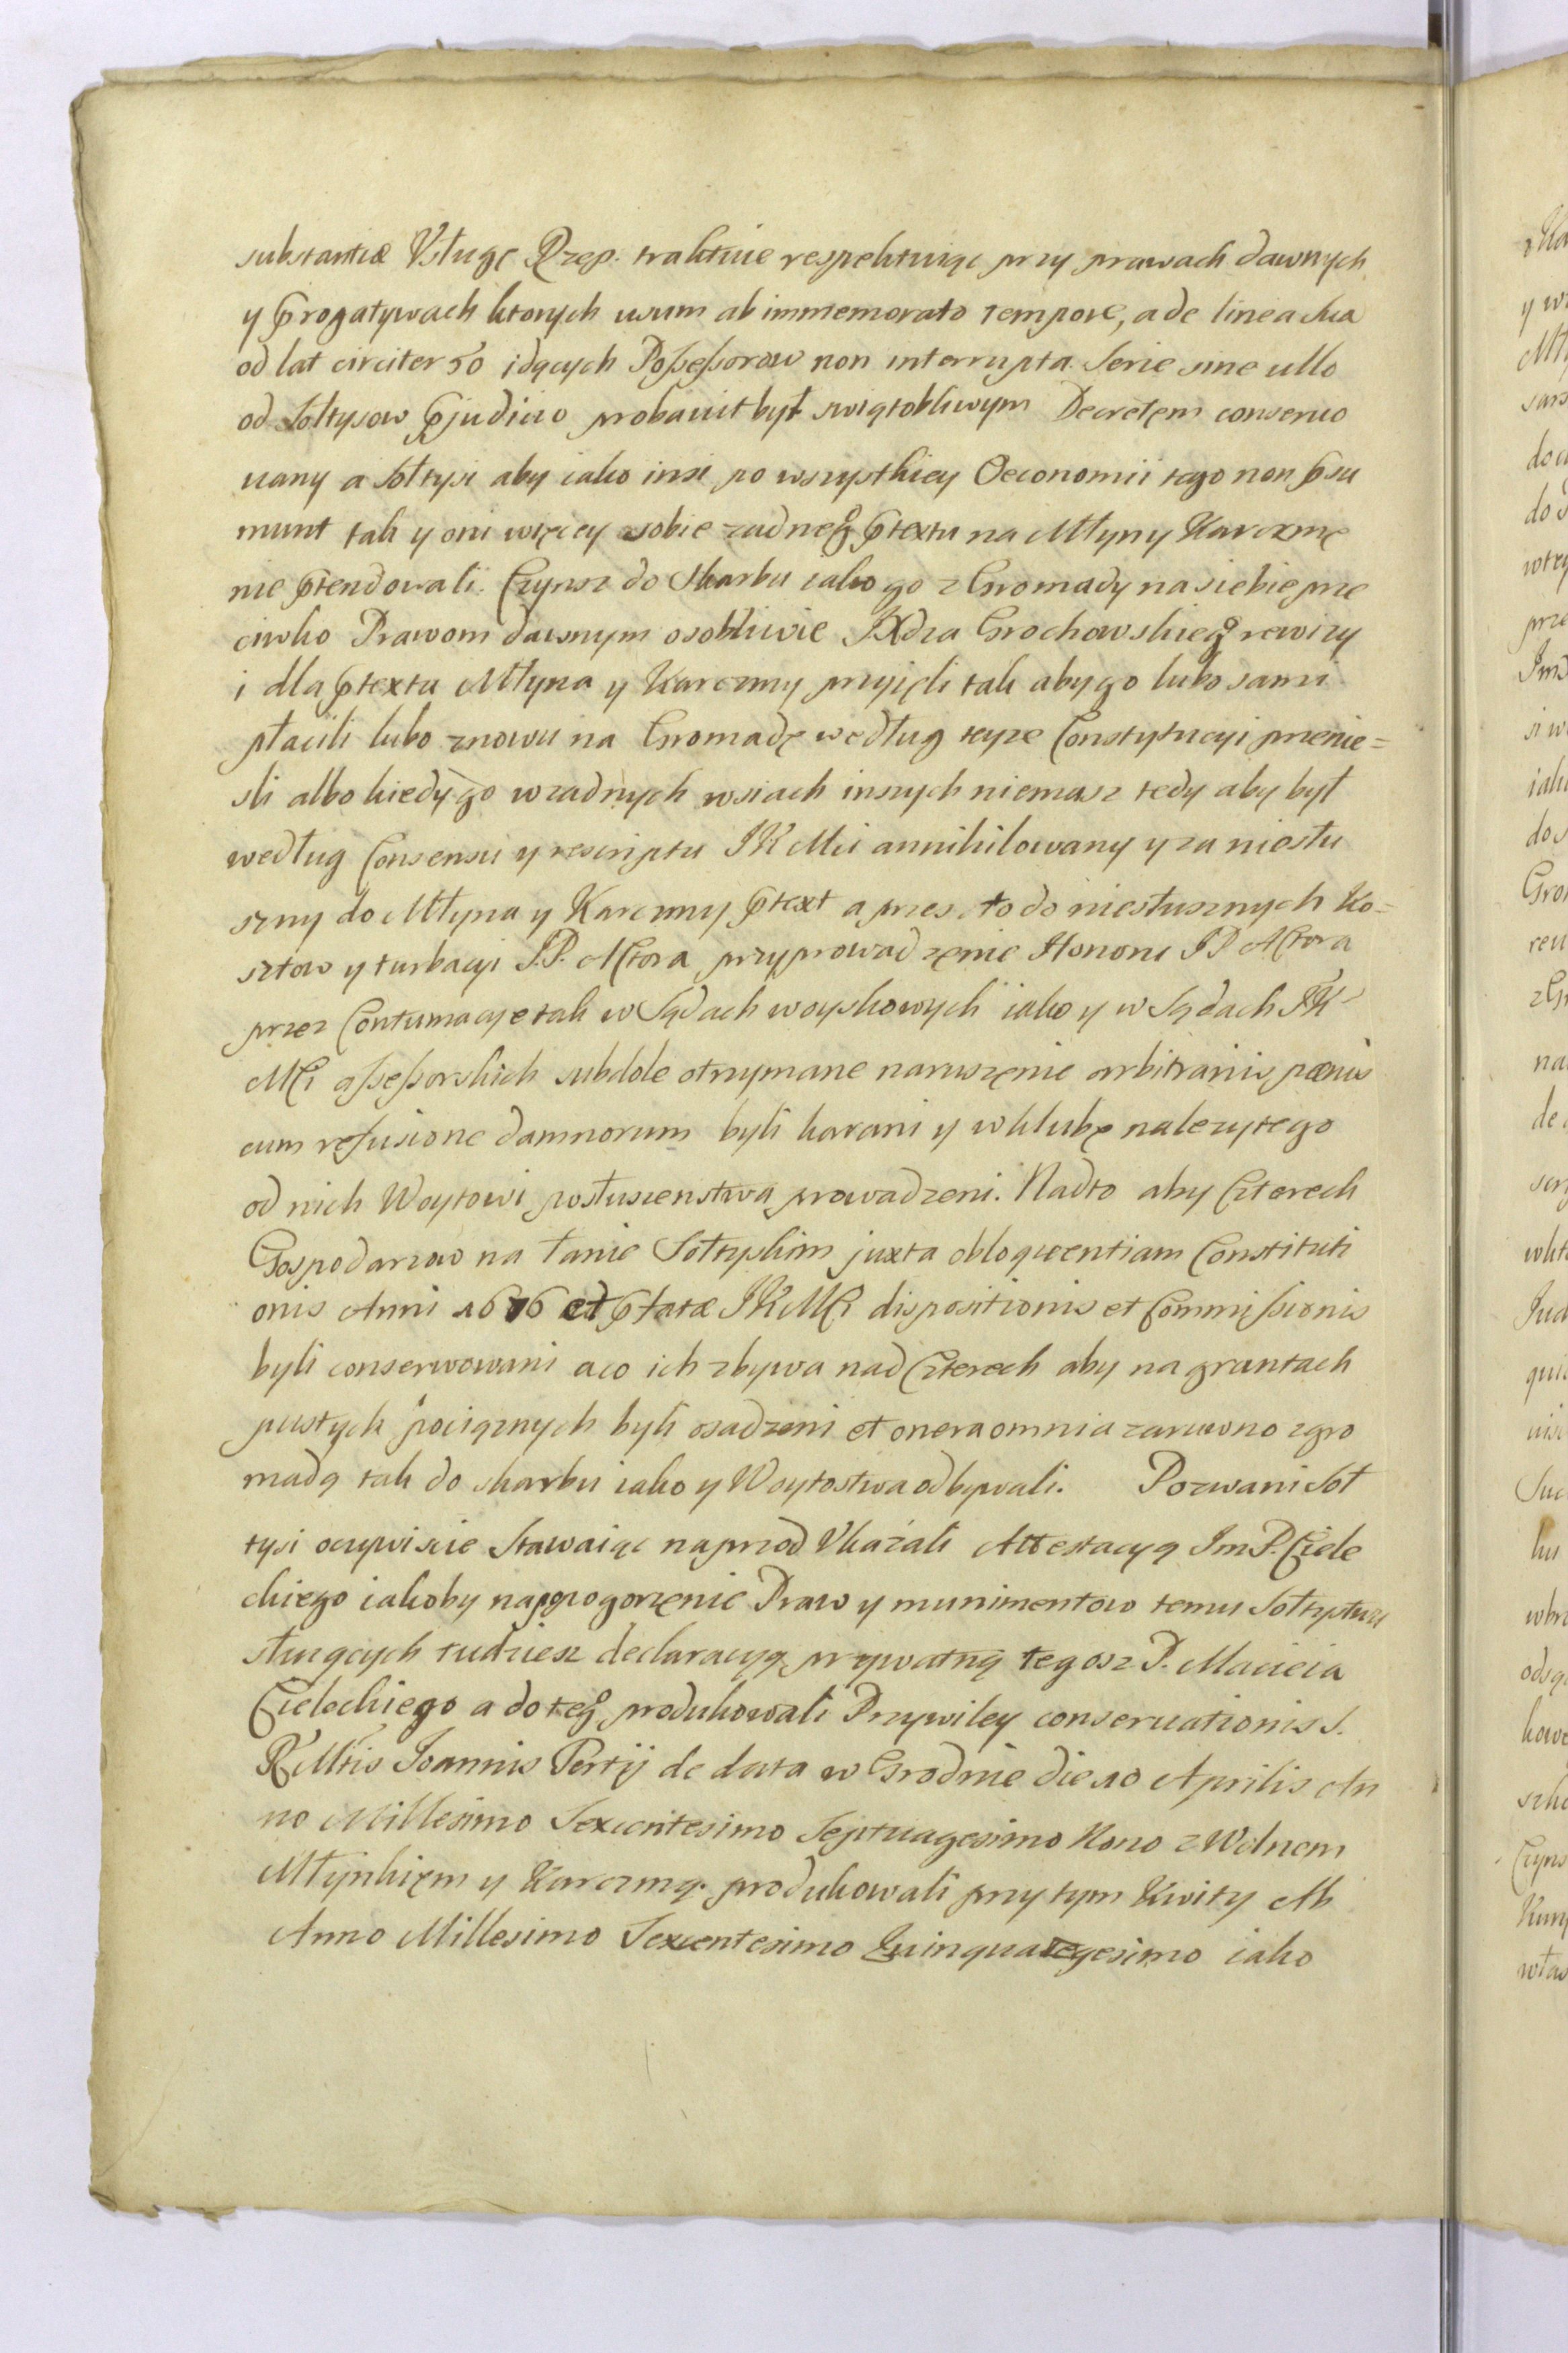 substantiæ Vsługę Rzep. traktuie respektuiąc przy prawach dawnych
y progatywach ktorych usum ab immemorato tempore, a de linea sua
od lat circiter 50 idących Poßeßorow non interrupta Serie sine ullo
od Sołtysow pjudicio probauit był swiątobliwym Decretęm conseruo
uany a Sołtysi aby iako insi po wszystkiey Oeconomii tego non psu
munt tak y oni więcey sobie zadneg ptextu na Młyny Karczmę
nie ptendowali. Czynsz do Skarbu iako go z Gromady na siebie prze
ciwko Prawom dawnym osobliwie JXdza Grochowskieg rewizy
i dla ptextu Młyna y Karczmy przyięli tak aby go lubo sami
płacili lubo znowu na Gromadę według teyze Constytucyi przenie=
sli albo kiedy go w zadnych wsiach inszych niemasz tedy aby był
według Consensu y rescriptu JKMci annihilowany y za niesłu
szny do Młyna y Karczmy ptext a przes to do niesłusznych Ko=
sztow y turbacyi J.P. Actora przyprowadzęnie Honoru JP Actora
przez Contumacye tak w Sądach woyskowych iako y w Sądach JK
MCi aßeßorskich subdole otrzymane naruszęnie arbitrariis pænis
cum refusione damnorum byli karani y w klubę nalezytego
od nich Woytowi posłuszenstwa prowadzeni. Nadto aby Czterech
Gospodarzow na łanie Sołtyskim juxta obloquentiam Constituti
onis Anni 1676 et pfatæ JKMCi dispositionis et Commißionis
byli conserwowani a co ich zbywa nad Czterech aby na gruntach
pustych pociąznych byli osadzeni et onera omnia zarowno z gro
madą tak do skarbu iako y Woytostwa odbywali. Pozwani Soł
tysi oczywiscie Stawaiąc naprzod Vkazali Attestacyą Im P. Ciele
ckiego iakoby na pogorzęnie Praw y munimentow temu Sołtystwu
słuzących tudziesz declaracyą prywatną tegosz P. Macieia
Cieleckiego a do teg produkowali Przywiley conseruationis S.
RMtis Joannis Tertij de data w Grodnie die 10 Aprilis An
no Millesimo Sexcentesimo Septuagesimo Nono z Wolnem
Młynkięm y Karczmą. produkowali przy tym Kwity Ab
Anno Millesimo Sexcentesimo Quinquagesimo iako